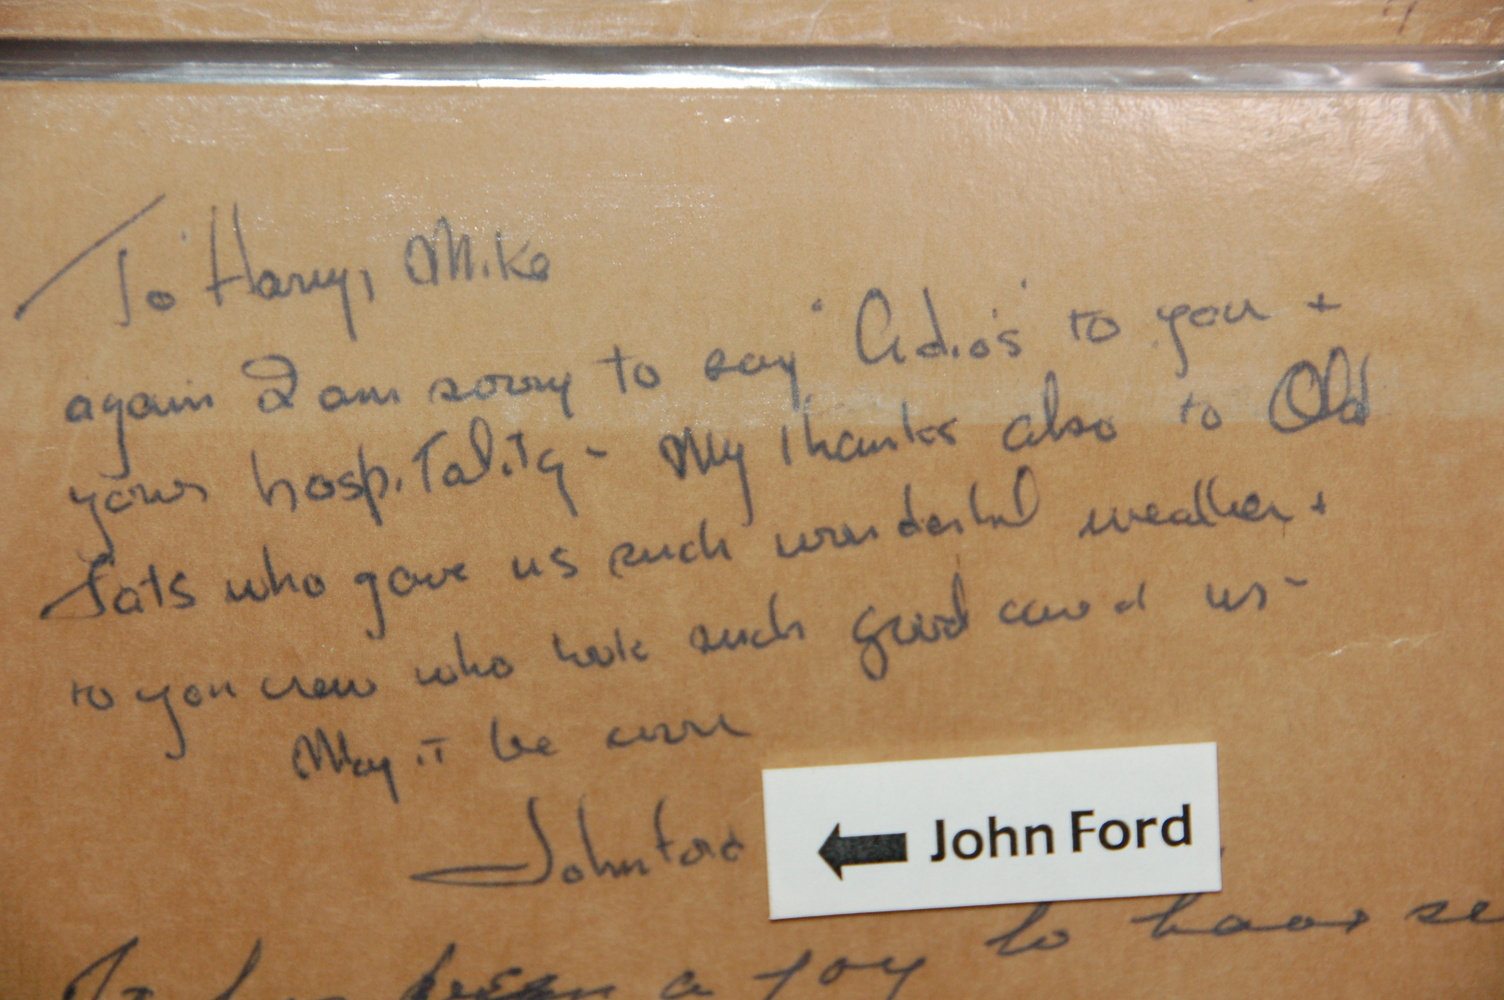 To Harry, Mike
again I am sorry to say 'Adios' to you +
your hospitality - My thanks also to Old
Fats who gave us such wonderful weather +
to you crew who took such good care of us -
May it be soon
John Ford
John Ford
a joy to have se